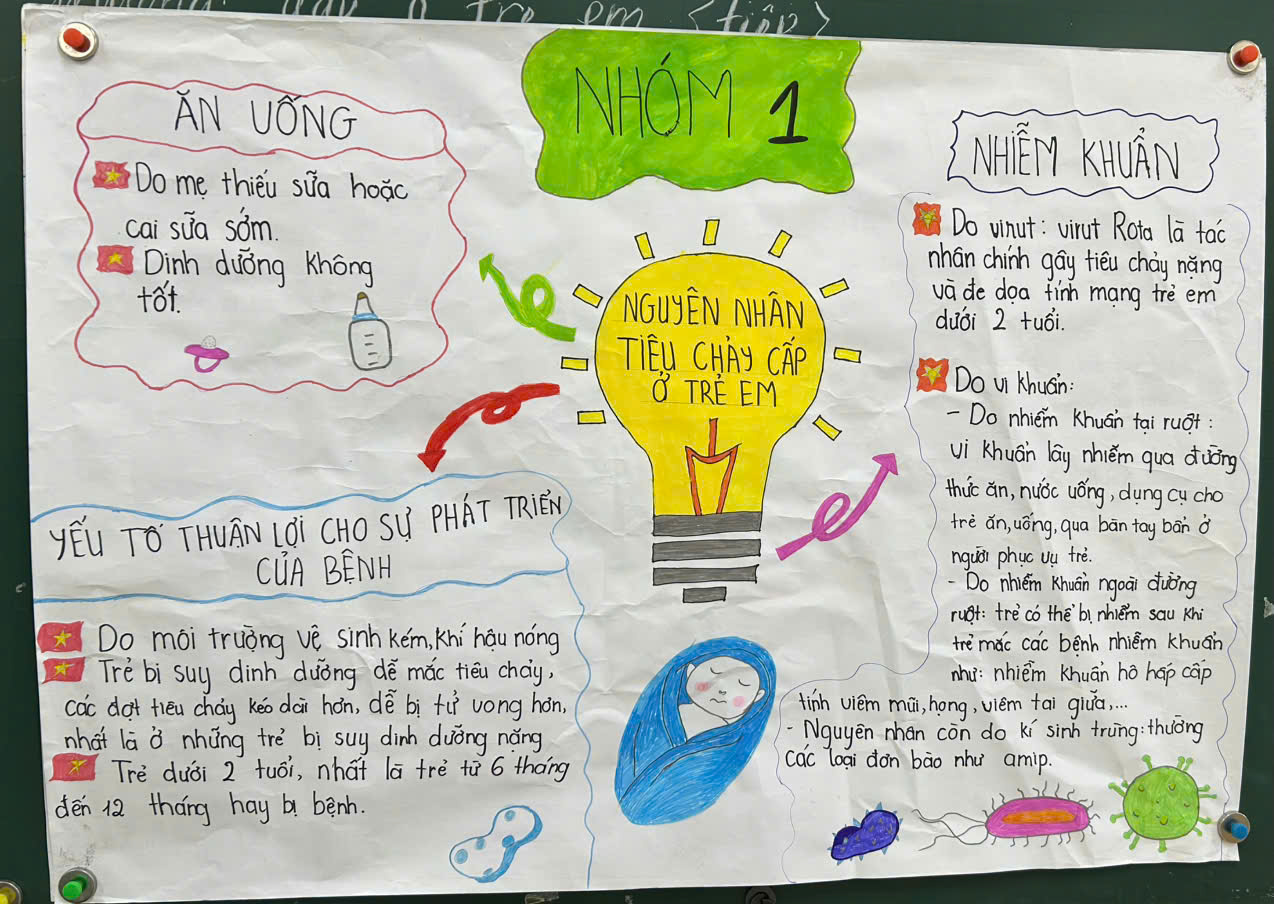 ở trẻ em <tiếp>
NHÓM 1
NGUYÊN NHÂN
TIÊU CHẢY CẤP
Ở TRẺ EM
ĂN UỐNG
Do mẹ thiếu sữa hoặc
cai sữa sớm.
Dinh dưỡng không
tốt.
YẾU TỐ THUẬN LỢI CHO SỰ PHÁT TRIỂN
CỦA BỆNH
Do môi trường vệ sinh kém, khí hậu nóng
Trẻ bị suy dinh dưỡng dễ mắc tiêu chảy,
các đợt tiêu chảy kéo dài hơn, dễ bị tử vong hơn,
nhất là ở những trẻ bị suy dinh dưỡng nặng
Trẻ dưới 2 tuổi, nhất là trẻ từ 6 tháng
đến 12 tháng hay bị bệnh.
NHIỄM KHUẨN
Do virut: virut Rota là tác
nhân chính gây tiêu chảy nặng
và đe dọa tính mạng trẻ em
dưới 2 tuổi.
Do vi khuẩn:
- Do nhiễm khuẩn tại ruột:
vi khuẩn lây nhiễm qua đường
thức ăn, nước uống, dụng cụ cho
trẻ ăn, uống, qua bàn tay bẩn ở
người phục vụ trẻ.
- Do nhiễm khuẩn ngoài đường
ruột: trẻ có thể bị nhiễm sau khi
trẻ mắc các bệnh nhiễm khuẩn
như: nhiễm khuẩn hô hấp cấp
tính viêm mũi, họng, viêm tai giữa,...
- Nguyên nhân còn do kí sinh trùng: thường
các loại đơn bào như amip.